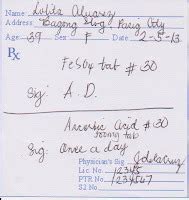 Name Lolita Alvarez
Address Bagong Ilog Pasig City
Age 39 Sex F Date 2-5-13
Rx
FeSO4 tab # 30
Sig: A.D.
Ascorbic Acid # 30
500mg tab
Sig: Once a day
Physician's Sig JdelaCruz
Lic No 12345
PTR No 1234567
S2 No